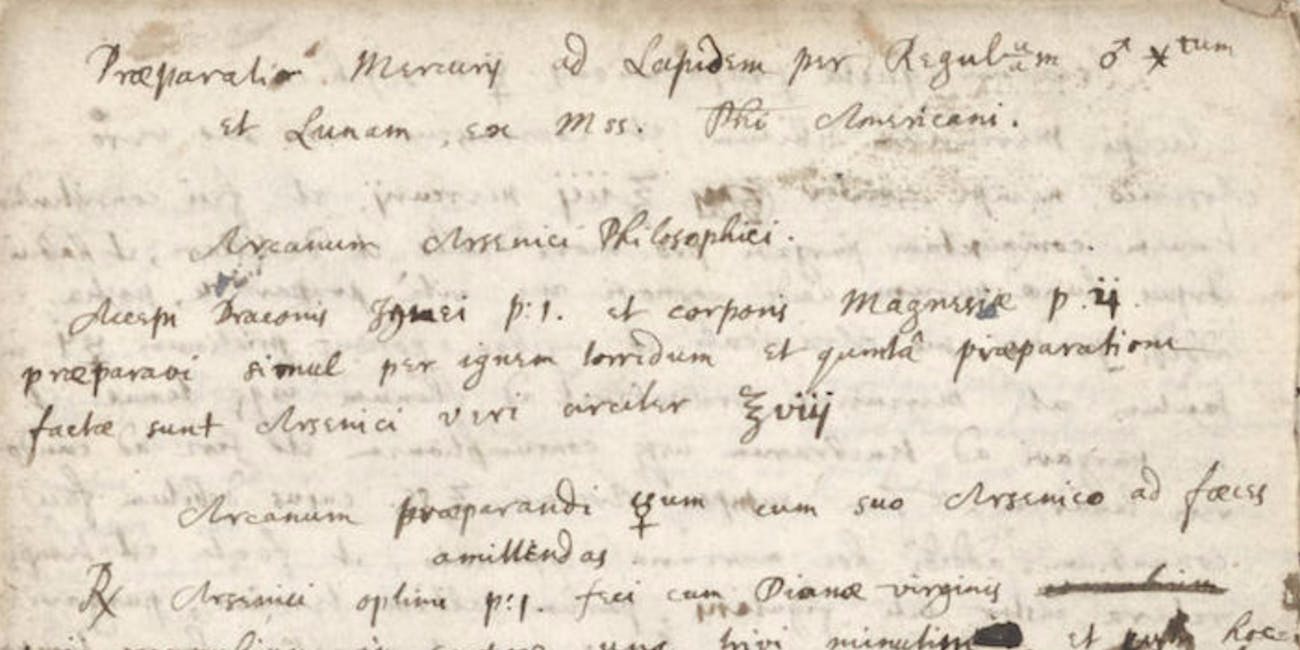 Præparatio Mercurij ad Lapidem per Regulum ♂ ⚹tum
et Lunam ex Mss. Phi Americani.
Arcanum Arsenici Philosophici.
Accepi Draconis Ignei p:1. et corporis Magnesiæ p.ij.
præparavi simul per ignem torridum et quintâ præparatione
factæ sunt Arsenici veri circiter ℥viij
Arcanum præparandi ☿um cum suo Arsenico ad fæces
amittendas
℞ Arsenici optimi p:1. feci cum Dianæ virginis
et hoc